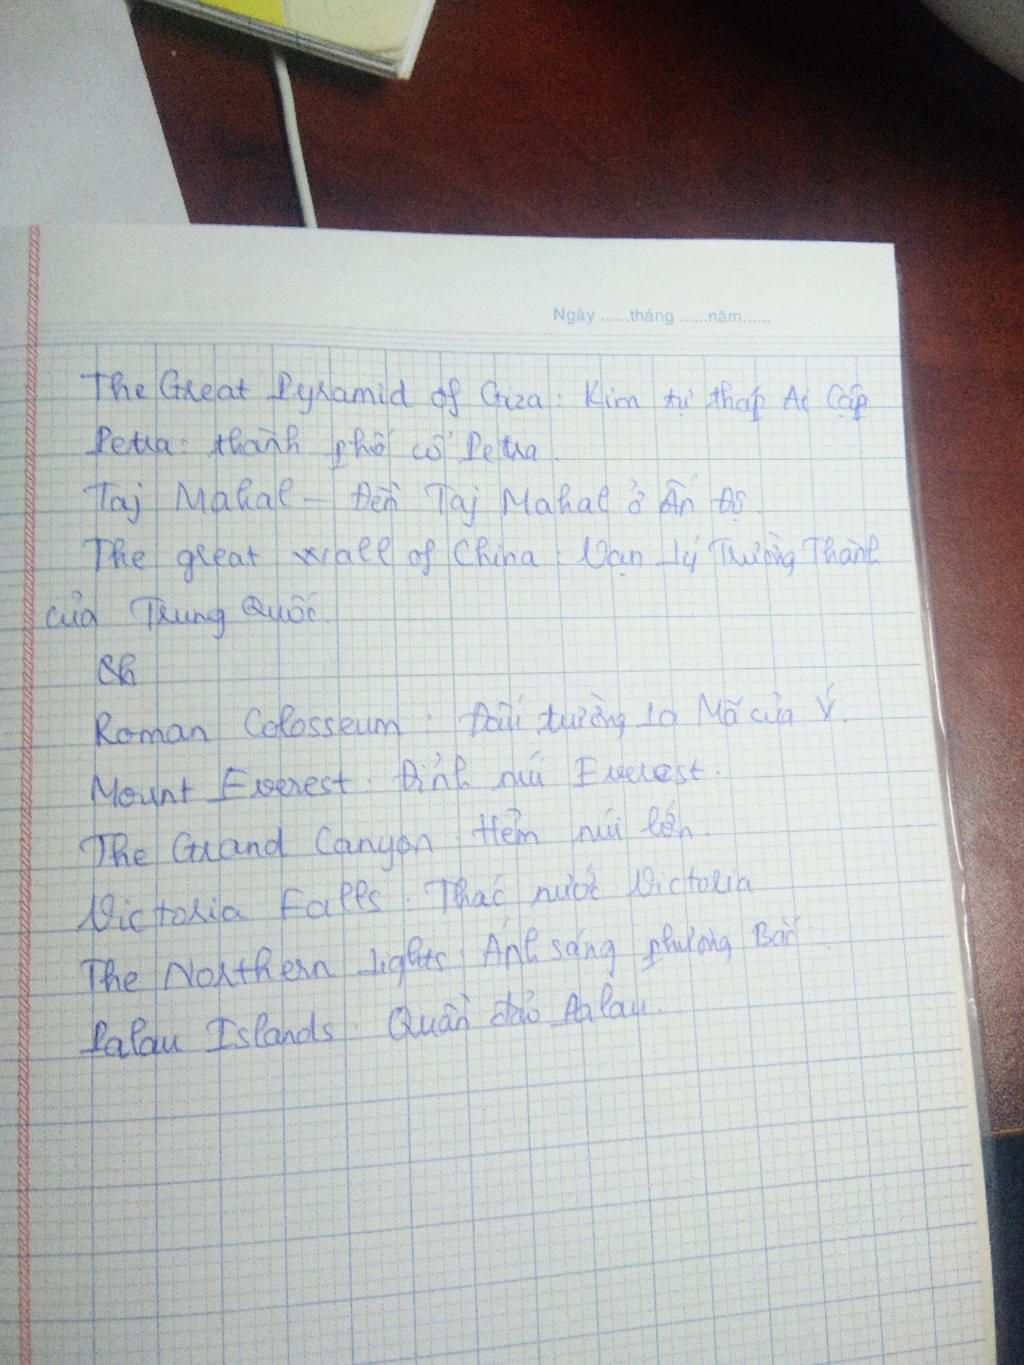 Ngày ......tháng ......năm......
The Great Pyramid of Giza: Kim tự tháp Ai Cập
Petra: thành phố cổ Petra.
Taj Mahal – Đền Taj Mahal ở Ấn Độ.
The great wall of China: Vạn Lý Trường Thành
của Trung Quốc.
Roman Colosseum: Đấu trường La Mã của Ý.
Mount Everest: Đỉnh núi Everest.
The Grand Canyon: Hẻm núi lớn.
Victoria Falls: Thác nước Victoria
The Northern Lights: Ánh sáng phương Bắc.
Palau Islands: Quần đảo Palau.